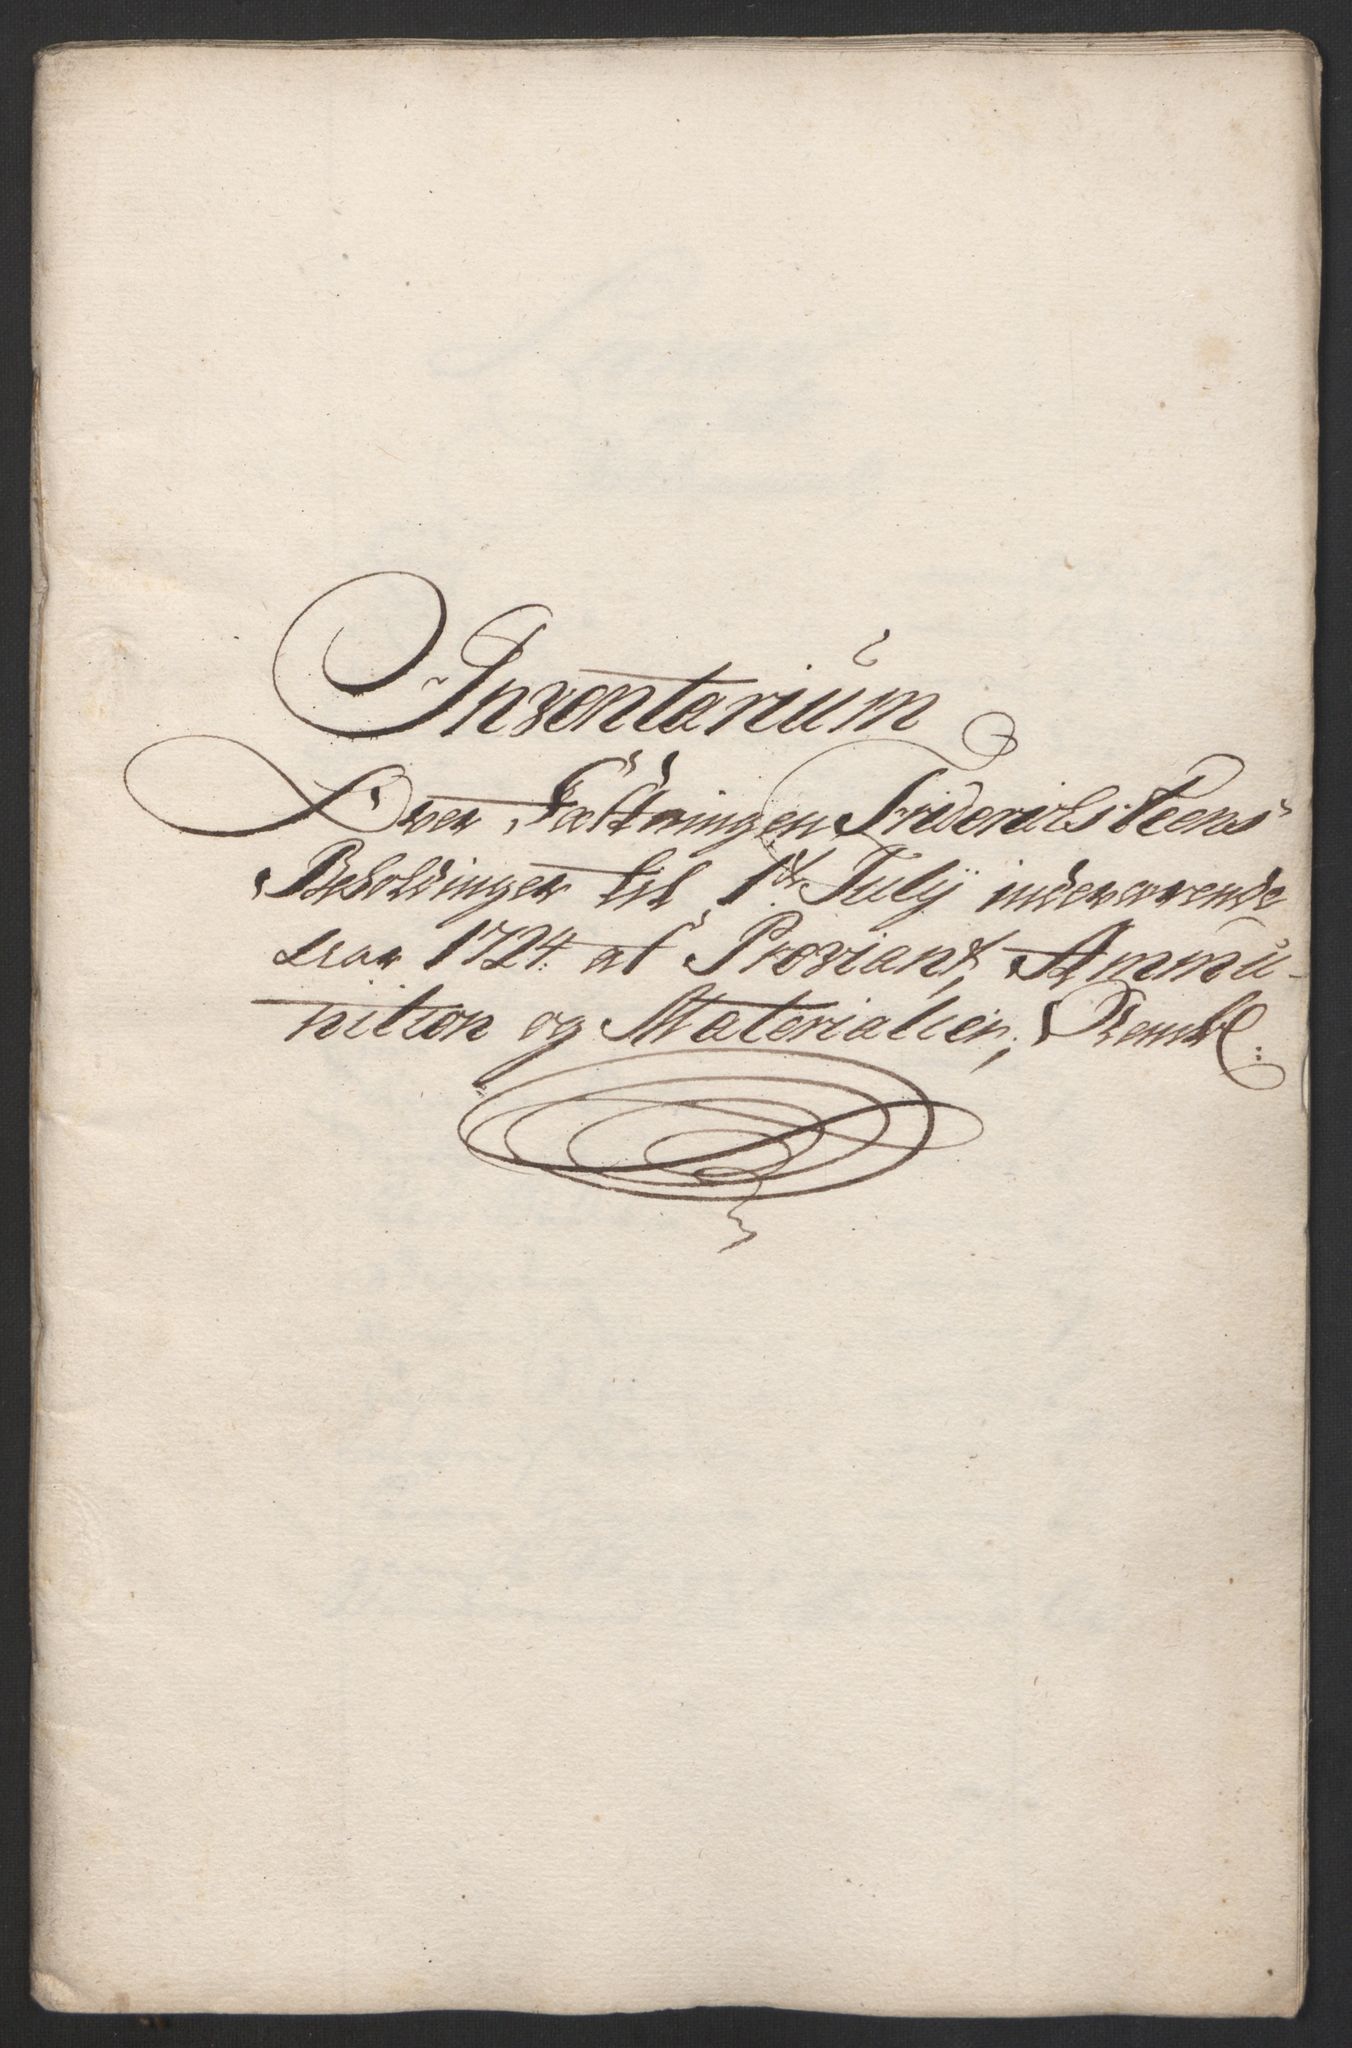 Inventarium
Over Fæstningen Friderichsteens
Beholdinger til 1de July indeværende
aar 1724. af Proviant, Ammu-
nition og Materialier,